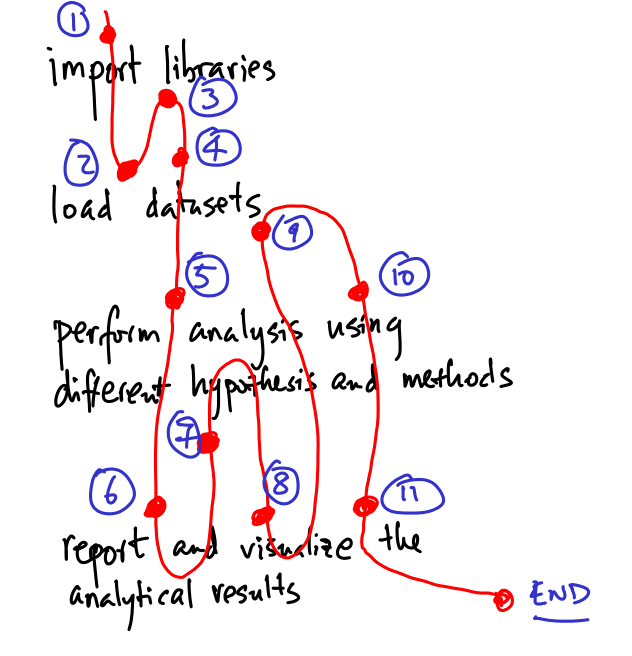 1
import libraries
3
4
2
load datasets
9
5
10
perform analysis using
different hypothesis and methods
7
6
8
11
report and visualize the
analytical results
END